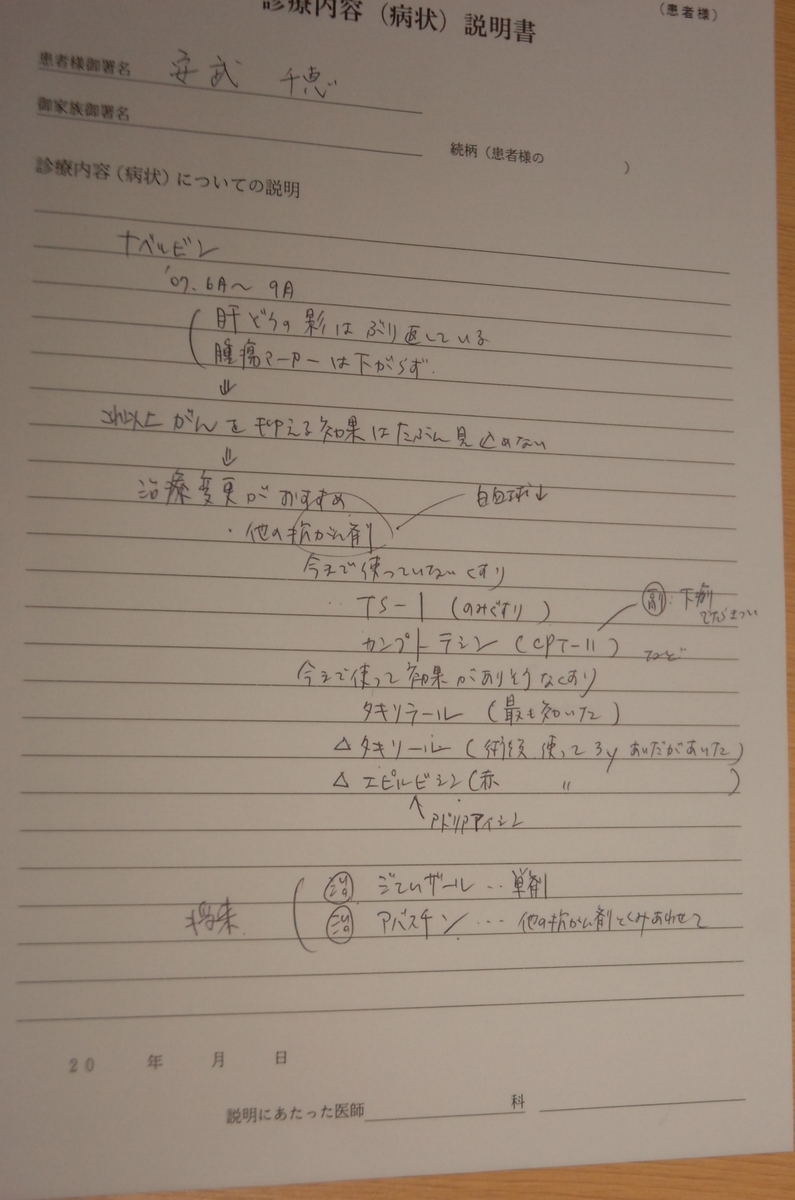 診療内容（病状）説明書
（患者様）
患者様御署名 安武 千恵
御家族御署名
続柄（患者様の　　）
診療内容（病状）についての説明
ナベルビン
'07. 6月〜 9月
肝ぞうの影はぶり返している
腫瘍マーカーは下がらず.
⇓
これ以上がんを抑える効果はたぶん見込めない
⇓
治療変更がおすすめ
自血球↓
・他の抗がん剤
今まで使っていないくすり
TS-1 (のみぐすり)
副: 下痢
カンプトテシン (CPT-11)
など
今まで使って効果がありそうなくすり
タキソテール (最も効いた)
△ タキソール (術後 使って 3y あいだがあいた)
△ エピルビシン (赤 〃 )
↑
アドリアマイシン
将来
治 ‥ 単剤
治 アバスチン ‥‥ 他の抗がん剤とくみあわせて
20　年　月　日
説明にあたった医師　科